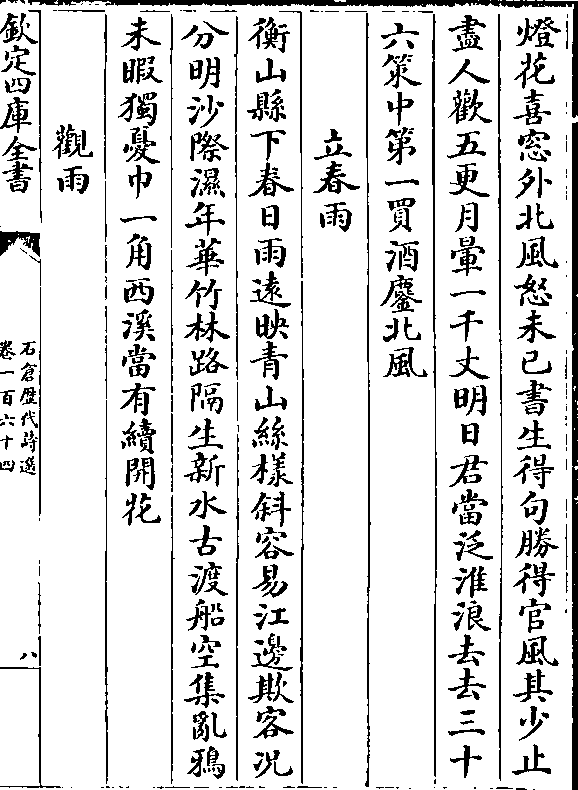 燈花喜窓外北風怒未已書生得句勝得官風其少止
盡人歡五更月暈一千丈明日君當泛淮浪去去三十
六策中第一買酒鏖北風
立春雨
衡山縣下春日雨遠映青山絲樣斜容易江邊欺客況
分明沙際濕年華竹林路隔生新水古渡船空集亂鴉
未暇獨憂巾一角西溪當有續開花
觀雨
欽定四庫全書
石倉歷代詩選
卷一百六十四
八